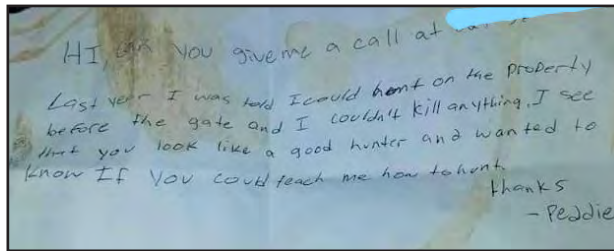 HI, can you give me a call at
Last year I was told I could hunt on the property
before the gate and I couldn't kill anything. I see
that you look like a good hunter and wanted to
know If you could teach me how to hunt.
thanks
- Peddie